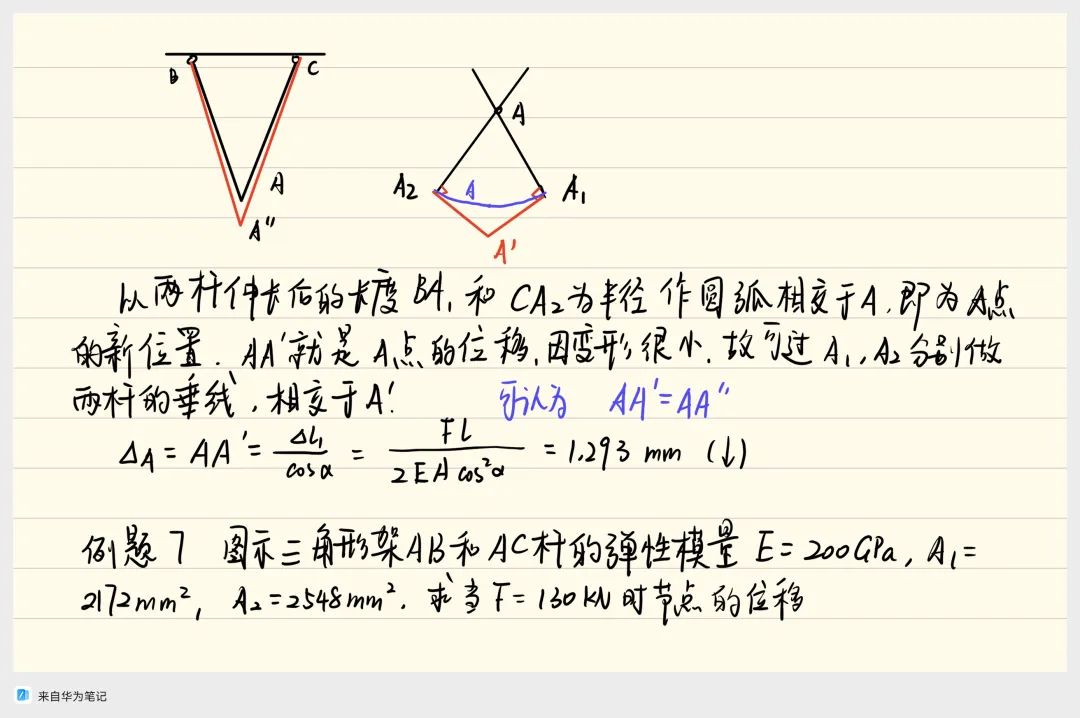 B
C
A
A"
A
A2
A
A1
A'
以两杆伸长后的长度BA1和CA2为半径作圆弧相交于A,即为A点
的新位置.AA'就是A点的位移,因变形很小,故可过A1,A2分别做
两杆的垂线,相交于A'.
可认为 AA'=AA"
ΔA = AA' = ΔL1/cosα = FL/2EAcos²α = 1.293 mm (↓)
例题7 图示三角形架AB和AC杆的弹性模量E=200GPa, A1=
2172mm², A2=2548mm². 求当F=130kN时节点的位移
来自华为笔记